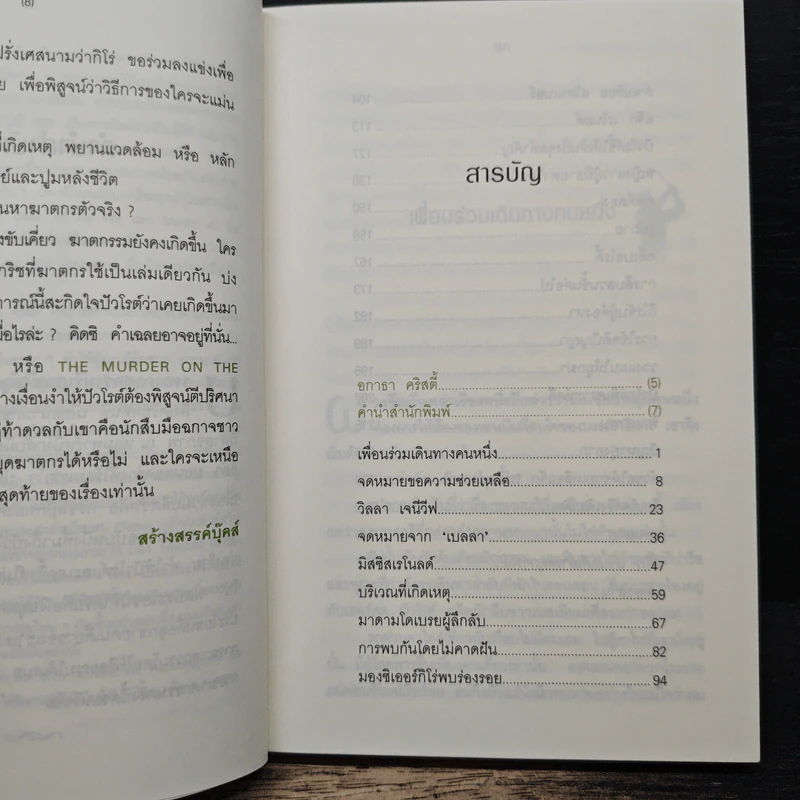 (8)
ปรั่งเศสนามว่ากิโร่ ขอร่วมลงแข่งเพื่อ
เพื่อพิสูจน์ว่าวิธีการของใครจะแม่น
ที่เกิดเหตุ พยานแวดล้อม หรือ หลัก
และปูมหลังชีวิต
ฆาตกรตัวจริง ?
ขับเคี่ยว ฆาตกรรมยังคงเกิดขึ้น ใคร
ที่ฆาตกรใช้เป็นเล่มเดียวกัน บ่ง
การณ์นี้สะกิดใจปัวโรต์ว่าเคยเกิดขึ้นมา
ไรล่ะ ? คิดซิ คำเฉลยอาจอยู่ที่นั่น...
หรือ THE MURDER ON THE
เงื่อนงำให้ปัวโรต์ต้องพิสูจน์ตีปริศนา
ท้าดวลกับเขาคือนักสืบมือฉกาจชาว
ฆาตกรได้หรือไม่ และใครจะเหนือ
สุดท้ายของเรื่องเท่านั้น
สร้างสรรค์บุ๊คส์
สารบัญ
อกาธา คริสตี้ (5)
คำนำสำนักพิมพ์ (7)
เพื่อนร่วมเดินทางคนหนึ่ง 1
จดหมายขอความช่วยเหลือ 8
วิลลา เจนีวีฟ 23
จดหมายจาก ‘เบลลา’ 36
มิสซิสเรโนลด์ 47
บริเวณที่เกิดเหตุ 59
มาดามโดเบรยผู้ลึกลับ 67
การพบกันโดยไม่คาดฝัน 82
มองซิเออร์กิโร่พบร่องรอย 94